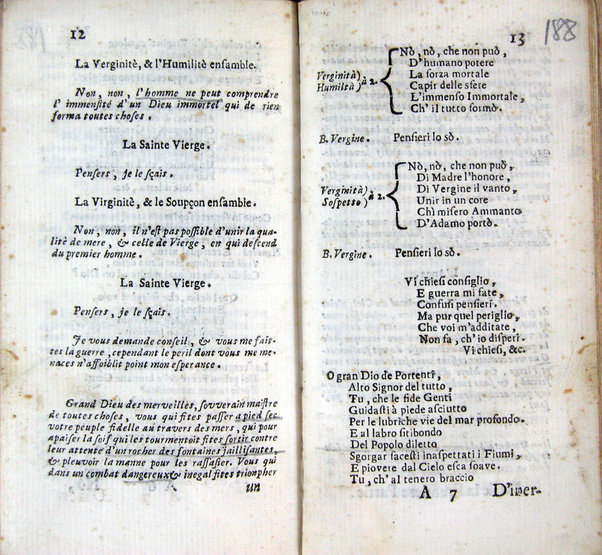 12
La Verginitè, & l'Humilitè ensamble.
Non, non, l'homme ne peut comprendre
l'immensité d'un Dieu immortel qui de rien
forma toutes choses.
La Sainte Vierge.
Pensers, je le sçais.
La Virginitè, & le Soupçon ensamble.
Non, non, il n'est pas possible d'unir la qua-
litè de mere, & celle de Vierge, en qui descend
du premier homme.
La Sainte Vierge.
Pensers, je le sçais.
Je vous demande conseil, & vous me fais-
tes la guerre, cependant le peril dont vous me me-
naces n'affoiblit point mon esperance.
Grand Dieu des merveilles, souverain maistre
de toutes choses, vous qui fites passer a pied sec
votre peuple fidelle au travers des mers, qui pour
apaiser la soif qui les tourmentoit fites sortir contre
leur attente d'un rocher des fontaines jaillisantes,
& pleuvoir la manne pour les rassasier. Vous qui
dans un combat dangereux & inegal fites triompher
un
13
188
Verginità) à 2.
Humiltà)
Nò, nò, che non può,
D'humano potere
La forza mortale
Capir delle sfere
L'immenso Immortale,
Ch'il tutto formò.
B. Vergine. Pensieri lo sò.
Verginità) à 2.
Sospetto)
Nò, nò, che non può,
Di Madre l'honore,
Di Vergine il vanto,
Unir in un core
Chi misero Ammanto
D'Adamo portò.
B. Vergine. Pensieri lo sò.
Vi chiesi consiglio,
E guerra mi fate,
Confusi pensieri.
Ma pur quel periglio,
Che voi m'additate,
Non fà, ch'io disperi.
Vi chiesi, &c.
O gran Dio de Portenti,
Alto Signor del tutto,
Tu, che le fide Genti
Guidasti à piede asciutto
Per le lubriche vie del mar profondo.
E al labro sitibondo
Del Popolo diletto
Sgorgar facesti inaspettati i Fiumi,
E piovere dal Cielo esca soave.
Tu, ch'al tenero braccio
A 7 D'iner-